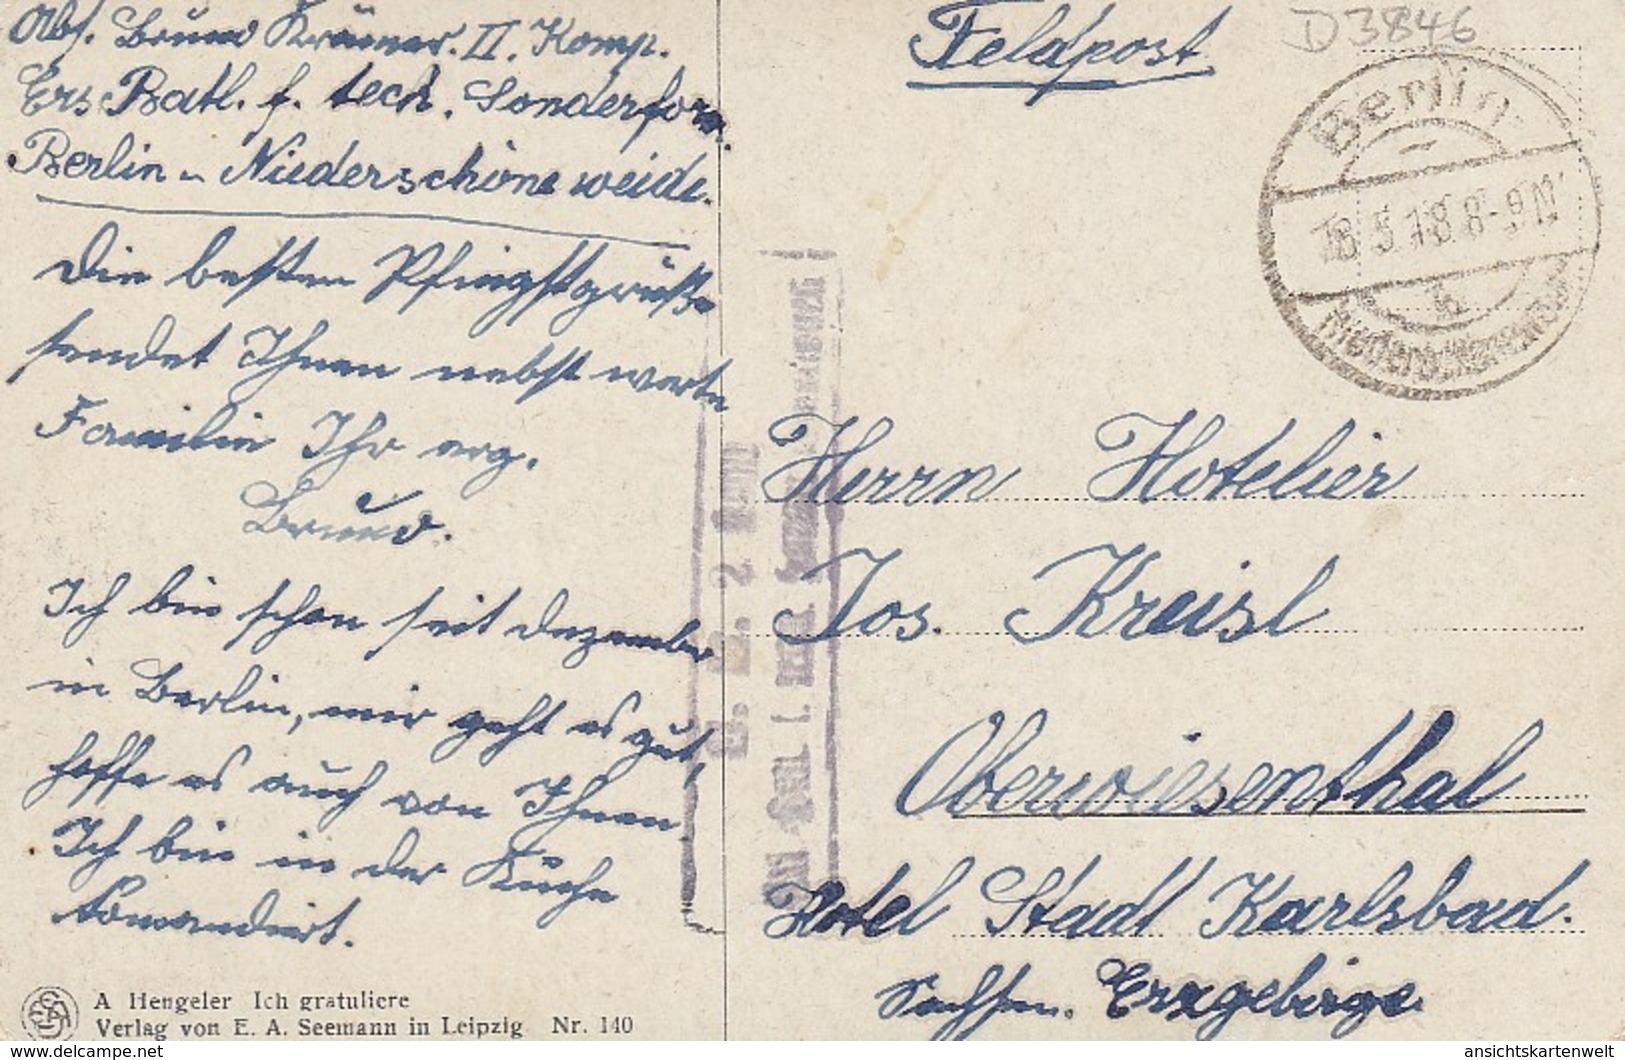 Abs. Bruno Krämer. II. Komp.
Ers. Batl. f. tech. Sonderform.
Berlin - Niederschöneweide.
Die besten Pfingstgrüße
sendet Ihnen nebst werte
Familie Ihr erg.
Bruno.
Ich bin schon seit Dezember
in Berlin, mir geht es gut,
hoffe es auch von Ihnen
Ich bin in der Küche
komandiert.
A Hengeler Ich gratuliere
Verlag von E. A. Seemann in Leipzig Nr. 140
Feldpost
D3846
Berlin-
18.5.18.8-9N
b
Niederschöneweide
Herrn Hotelier
Jos. Kreisl
Oberwiesenthal
Hotel Stadt Karlsbad.
Sachsen. Erzgebirge
ansichtskartenwelt